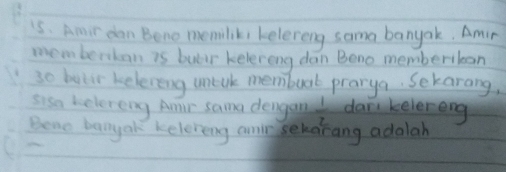 15. Amir dan Beno memiliki kelereng sama banyak. Amir
memberikan 75 butir kelereng dan Beno memberikan
30 butir kelereng untuk membuat prarya. Sekarang,
sisa kelereng Amir sama dengan 1/2 dari kelereng
Beno banyak kelereng amir sekarang adalah